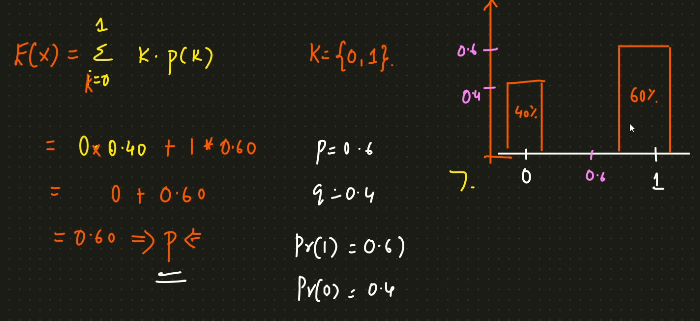 1
E(x) = Σ k · p(k)
k=0
K = {0, 1}.
= 0 * 0.40 + 1 * 0.60
= 0 + 0.60
= 0.60 ⇒ p ⇐
p = 0.6
q = 0.4
Pr(1) = 0.6)
Pr(0) = 0.4
0.6
0.4
40%
60%
0
0.6
1